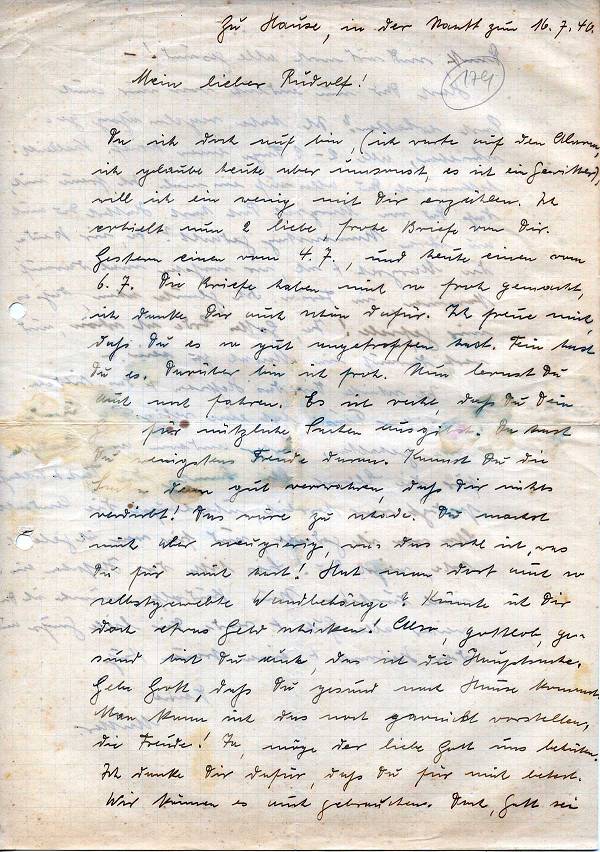 Zu Hause, in der Nacht zum 16.7.40.
174
Mein lieber Rudolf!
Da ich doch auf bin, (ich warte auf den Alarm,
ich glaube heute aber umsonst, es ist ein Gewitter),
will ich ein wenig mit Dir erzählen. Ich
erhielt nun 2 liebe, frohe Briefe von Dir.
Gestern einen vom 4.7., und heute einen vom
6.7. Die Briefe haben mich so froh gemacht,
ich danke Dir auch schön dafür. Ich freue mich,
daß Du es so gut angetroffen hast. Fein hast
Du es. Darüber bin ich froh. Nun lernst Du
auch noch fahren. Es ist recht, daß Du Dein
für nützliche Sachen ausgibst. Da hast
Du wenigstens Freude daran. Kannst Du die
Sachen denn gut verwahren, daß Dir nichts
verdirbt! Das wäre zu schade. Du machst
mich aber neugierig, was das wohl ist, was
Du für mich hast! Hat man dort auch so
selbstgewebte Wandbehänge? Könnte ich Dir
doch etwas Geld schicken! Also, gottlob, ge-
sund bist Du auch, das ist die Hauptsache.
Gebe Gott, daß Du gesund nach Hause kommst.
Man kann sich das noch gar nicht vorstellen,
die Freude! Ja, möge der liebe Gott uns behüten.
Ich danke Dir dafür, daß Du für mich betest.
Wir können es auch gebrauchen. Doch, Gott sei